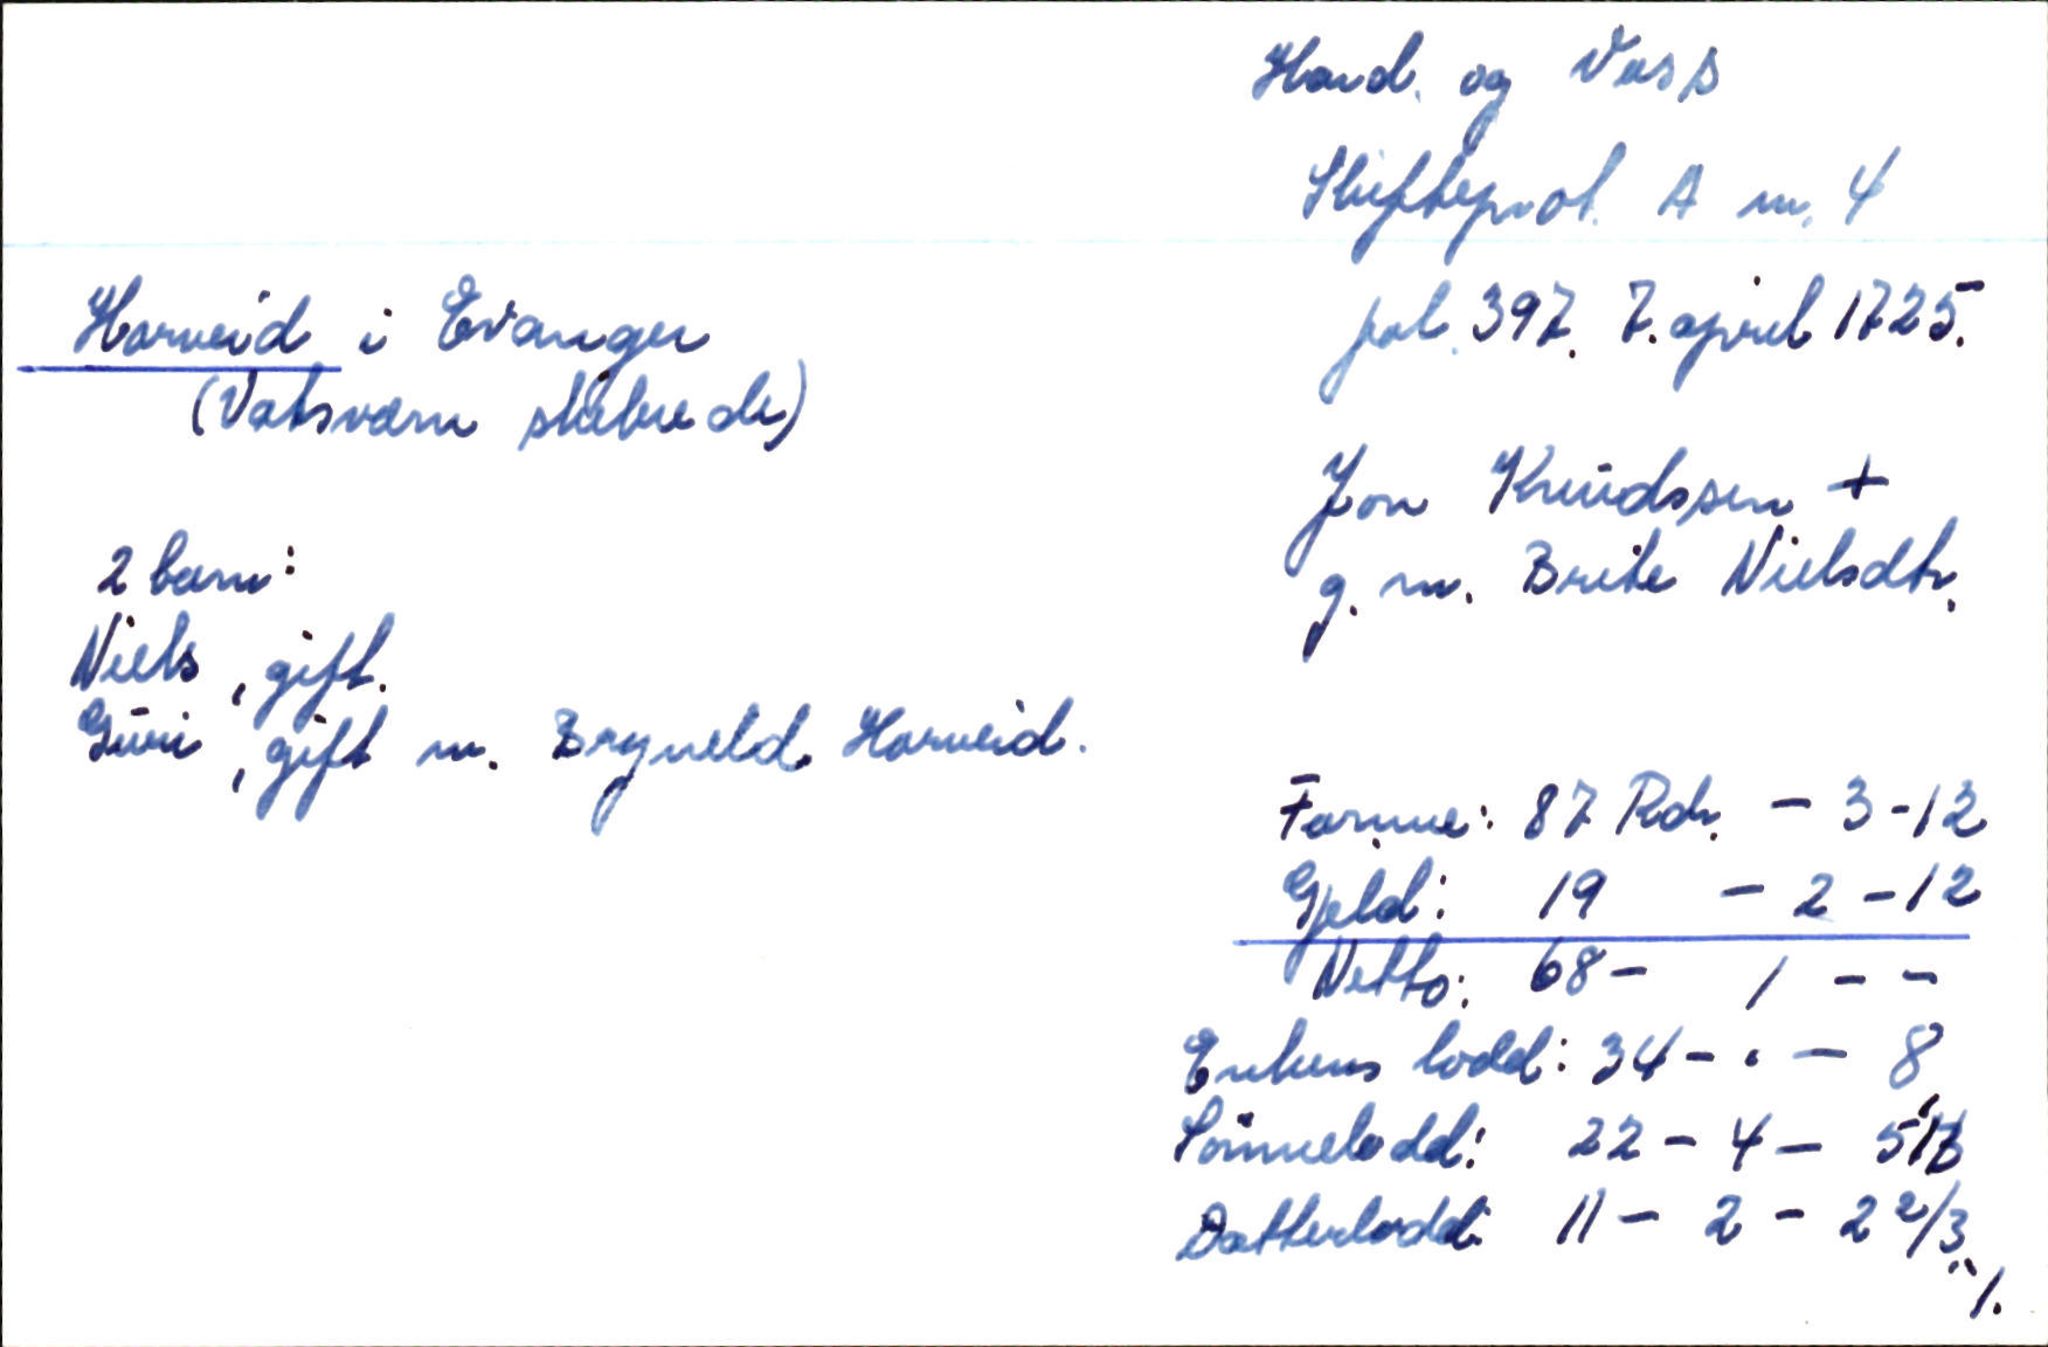 Hard. og Voss
Skifteprot. A nr. 4
fol. 397. 7. april 1725.
Horveid i Evanger
(Vatsvørn skibrede)
Jon Knudssen +
g. m. Brite Nielsdtr.
2 barn:
Niels, gift.
Guri, gift m. Bryneld Horveid.
Formue: 87 Rdr. - 3 - 12
Gjeld: 19 - 2 - 12
Netto: 68 - 1 - -
Enkens lodd: 34 - . - 8
Sønnelodd: 22 - 4 - 5 1/3
Datterlodd: 11 - 2 - 2 2/3
./.